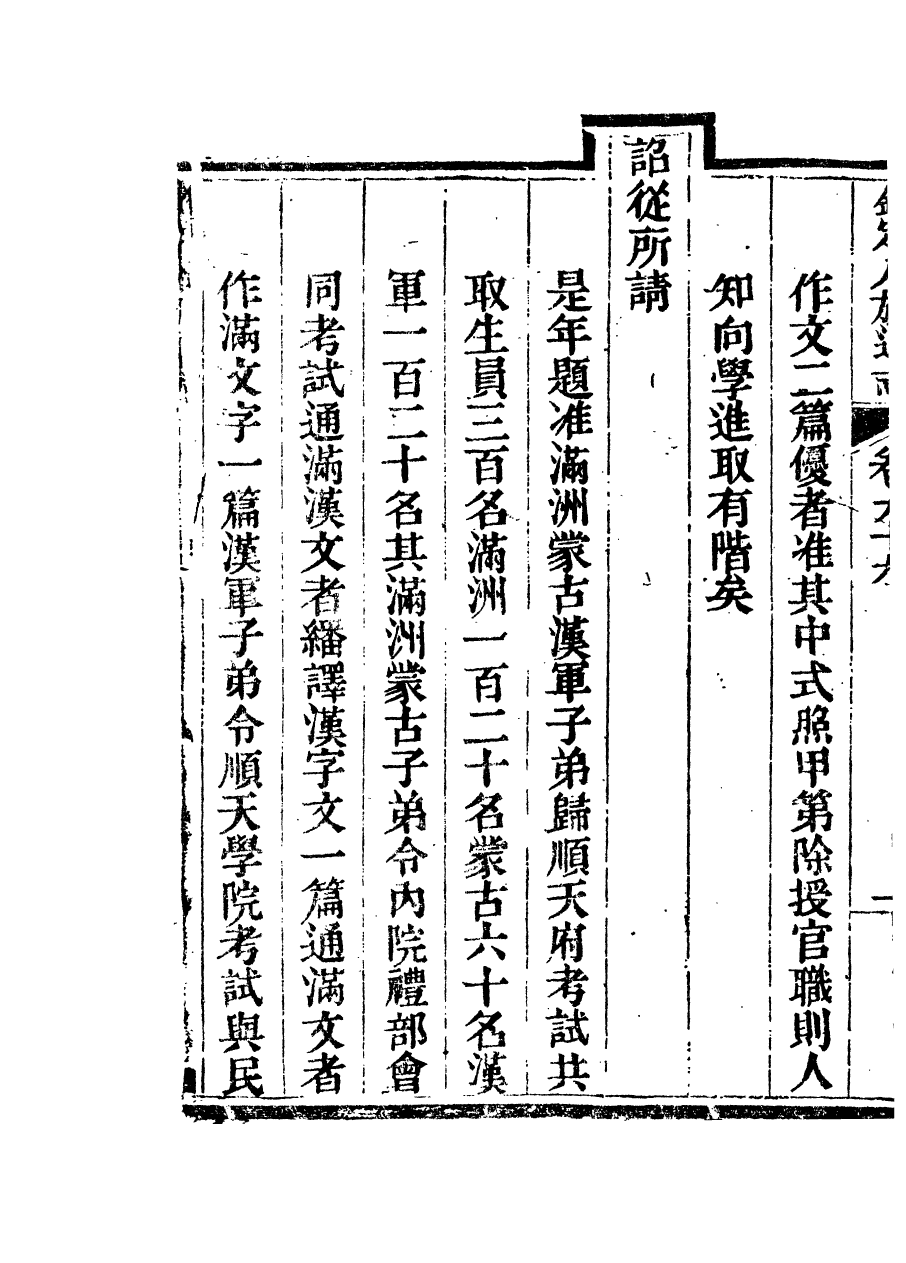 作文二篇優者准其中式照甲第除授官職則人
知向學進取有階矣
詔從所請
是年題准滿洲蒙古漢軍子弟歸順天府考試共
取生員三百名滿洲一百二十名蒙古六十名漢
軍一百二十名其滿洲蒙古子弟令內院禮部會
同考試通滿漢文者繙譯漢字文一篇通滿文者
作滿文字一篇漢軍子弟令順天學院考試與民